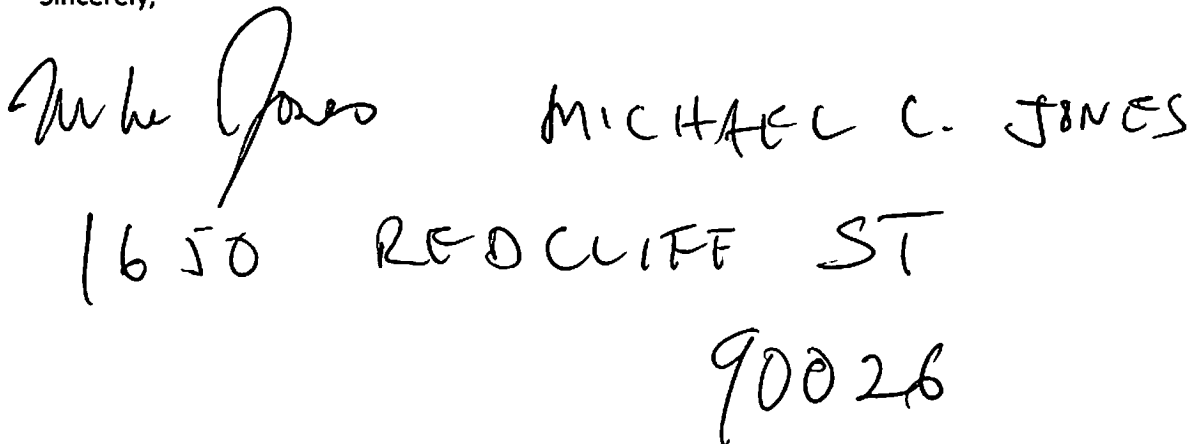 Sincerely,
Mike Jones MICHAEL C. JONES
1650 REDCLIFF ST
90026